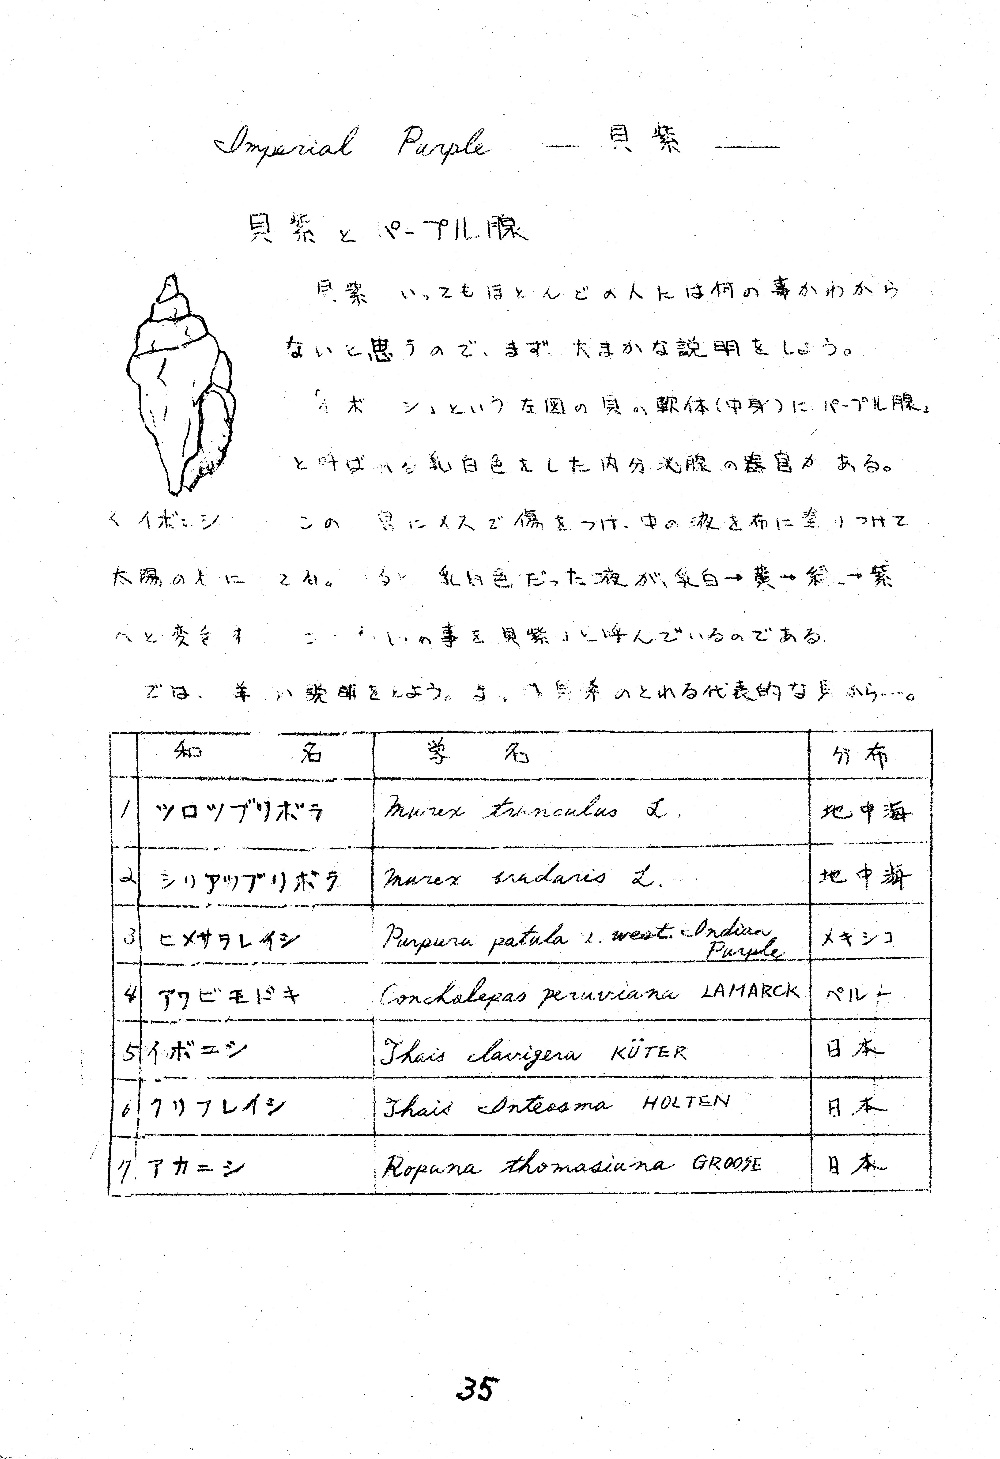 Imperial Purple — 貝紫 —
貝紫とパープル腺
貝紫 いってもほとんどの人には何の事かわから
ないと思うので、まず 大まかな説明をしよう。
「イボ シ」という左図の貝の軟体(中身)に パープル腺」
と呼ばれる乳白色をした内分泌腺の器官がある。
<イボニシ この 貝にメスで傷をつけ、中の液を布に塗りつけて
太陽の 乳白色だった液が、乳白→黄→緑→紫
へと変色す の事を貝紫」と呼んでいるのである
では、 説明をしよう。 貝紫のとれる代表的な貝から…。
和 名 学 名 分布
1 ツロツブリボラ Murex trunculus L. 地中海
2 シリアツブリボラ Murex brudaris L. 地中海
3 ヒメサラレイシ Purpura patula L. west. Indian Purple メキシコ
4 アワビモドキ Concholepas peruviana LAMARCK ペルー
5 イボニシ Thais clavigera KÜTER 日本
6 クリフレイシ Thais Inteosma HOLTEN 日本
7 アカニシ Ropana thomasiana GROOSE 日本
35